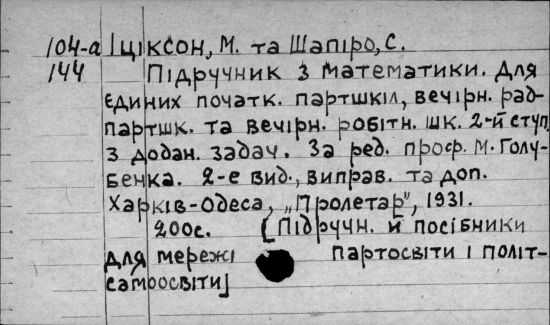 104-а Іціксон, М. та Шапіро, С.
144 Підручник з математики. Для
єдиних початк. партшкіл, вечірн. рад-
партшк. та вечірн. робітн. шк. 2-й ступ.
З додан. задач. За ред. проф. М. Голу-
бенка. 2-е вид., виправ. та доп.
Харків-Одеса, „Пролетар", 1931.
200с. [Підручн. й посібники
для мережі партосвіти і політ-
самоосвіти]